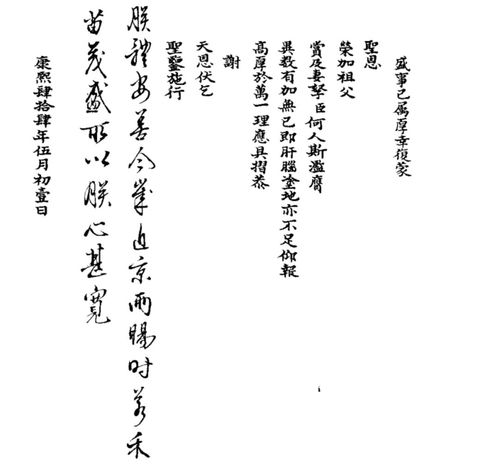 盛事已属厚幸復蒙
聖恩
榮加祖父
賞及妻孥臣何人斯濫膺
異数有加無已即肝腦塗地亦不足仰報
高厚於萬一理應具摺恭
謝
天恩伏乞
聖鑒施行
朕體安善今歲近京雨暘時若禾
苗茂盛所以朕心甚寬
康熙肆拾肆年伍月初壹日